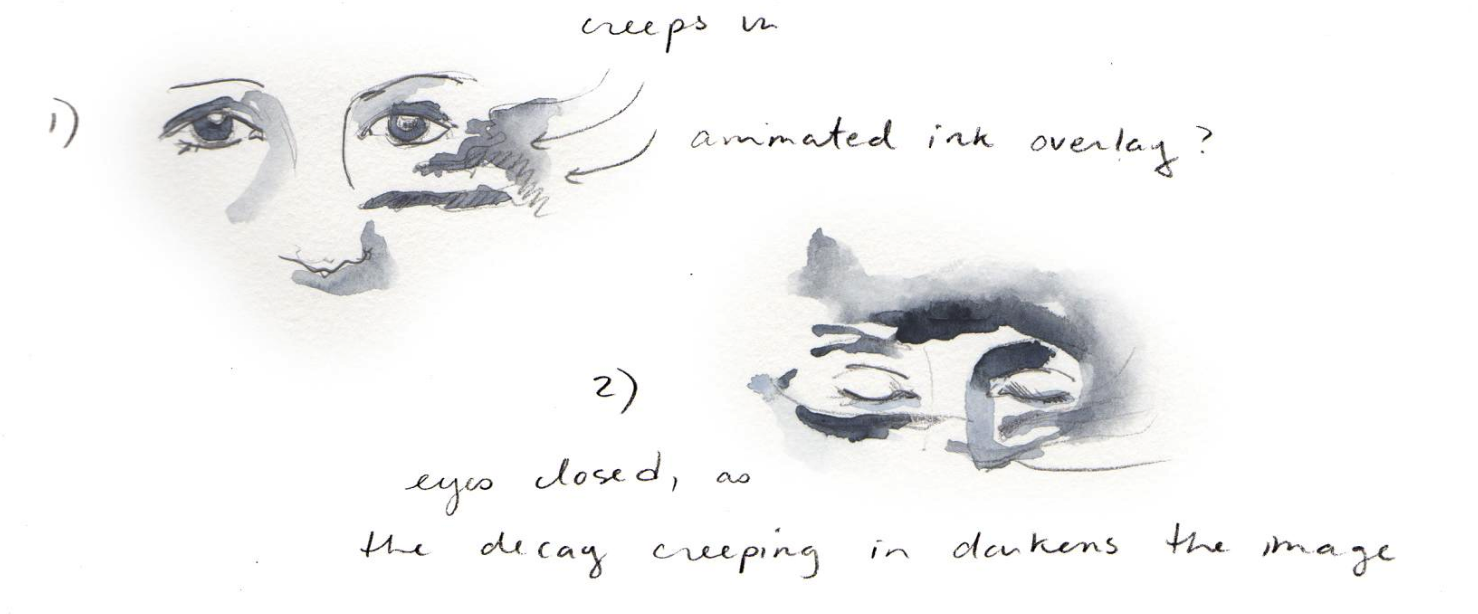 creeps in
1)
animated ink overlay?
2)
eyes closed, as
the decay creeping in darkens the image